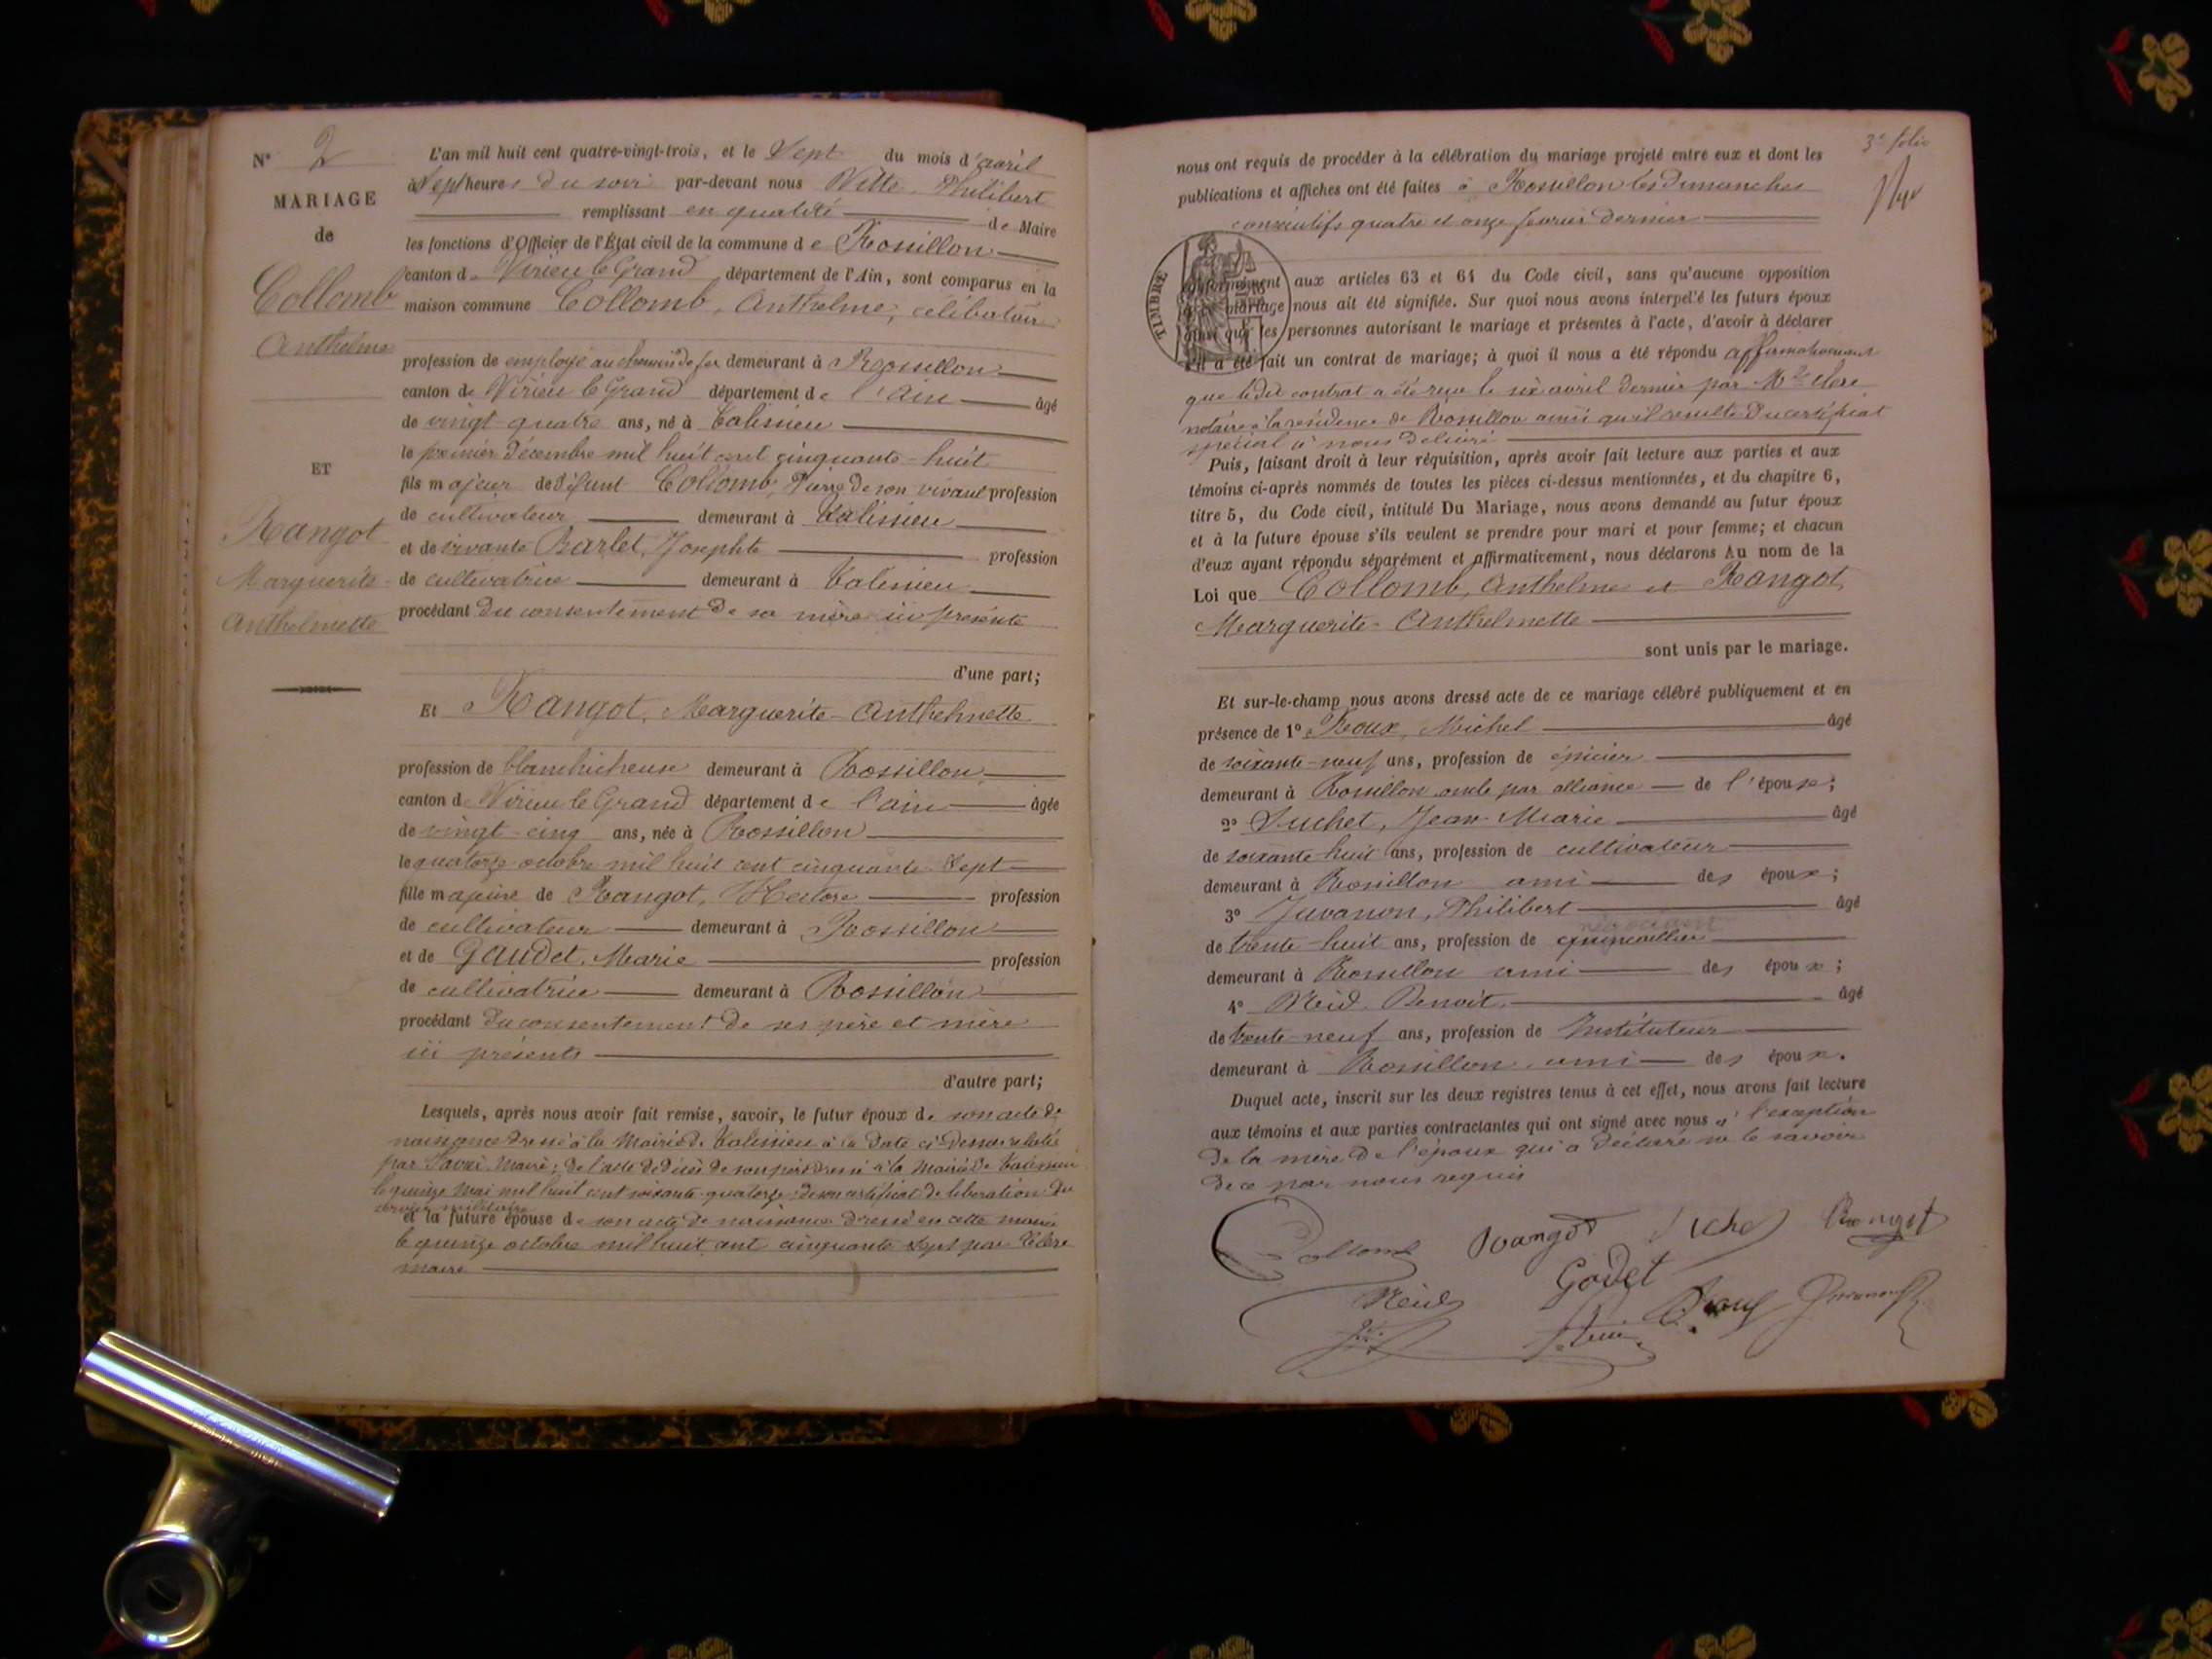 N° 2
MARIAGE
de
Collomb
Anthelme
ET
Rangot
Marguerite
Anthelmette
L'an mil huit cent quatre-vingt-trois, et le Sept du mois d'avril
à Sept heures du soir par-devant nous Philibert
remplissant en qualité de Maire
les fonctions d'Officier de l'État civil de la commune de Rossillon
canton de Virieu le Grand département de l'Ain, sont comparus en la
maison commune Collomb, Anthelme, célibataire
profession de employé au chemin de fer demeurant à Rossillon
canton de Virieu le Grand département de l'Ain âgé
de vingt quatre ans, né à Talissieu
le premier décembre mil huit cent cinquante-huit
fils majeur de défunt Collomb, Pierre de son vivant profession
de cultivateur demeurant à Talissieu
et de vivante Barlet, Josephte profession
de cultivatrice demeurant à Talissieu
procédant du consentement de sa mère ici présente
d'une part;
Et Rangot, Marguerite-Anthelmette
profession de blanchicheuse demeurant à Rossillon
canton de Virieu le Grand département de l'ain âgée
de vingt-cinq ans, née à Rossillon
le quatorze octobre mil huit cent cinquante-sept
fille majeure de Rangot, profession
de cultivateur demeurant à Rossillon
et de Gaudet, Marie profession
de cultivatrice demeurant à Rossillon
procédant du consentement de ses père et mère
ici présents
d'autre part;
Lesquels, après nous avoir fait remise, savoir, le futur époux de son acte de
naissance dressé à la Mairie de Talissieu à la date ci-dessus relatée
par Maire; de l'acte de décès de son père dressé à la Mairie de Talissieu
le quinze Mai mil huit cent soixante-quatorze; de son certificat de libération du
service militaire
et la future épouse de son acte de naissance dressé en cette mairie
le quinze octobre mil huit cent cinquante sept par Clerc
maire
3e folio
nous ont requis de procéder à la célébration du mariage projeté entre eux et dont les
publications et affiches ont été faites à Rossillon les dimanches
consécutifs quatre et onze février dernier
TIMBRE
conformément aux articles 63 et 64 du Code civil, sans qu'aucune opposition
à ce mariage nous ait été signifiée. Sur quoi nous avons interpel'é les futurs époux
ainsi que les personnes autorisant le mariage et présentes à l'acte, d'avoir à déclarer
s'il a été fait un contrat de mariage; à quoi il nous a été répondu affirmativement
que ledit contrat a été reçu le six avril dernier par Me Clerc
notaire à la résidence de Rossillon ainsi qu'il résulte du certificat
spécial à nous délivré
Puis, faisant droit à leur réquisition, après avoir fait lecture aux parties et aux
témoins ci-après nommés de toutes les pièces ci-dessus mentionnées, et du chapitre 6,
titre 5, du Code civil, intitulé Du Mariage, nous avons demandé au futur époux
et à la future épouse s'ils veulent se prendre pour mari et pour femme; et chacun
d'eux ayant répondu séparément et affirmativement, nous déclarons Au nom de la
Loi que Collomb, Anthelme et Rangot,
Marguerite-Anthelmette
sont unis par le mariage.
Et sur-le-champ nous avons dressé acte de ce mariage célébré publiquement et en
présence de 1° Roux, Michel âgé
de soixante-neuf ans, profession de épicier
demeurant à Rossillon oncle par alliance de l'épouse;
2° Luchet, Jean-Marie âgé
de soixante-huit ans, profession de cultivateur
demeurant à Rossillon ami des époux;
3° Juvanon, Philibert âgé
de trente-huit ans, profession de quincaillier
demeurant à Rossillon ami des époux;
4° Neid, Benoit âgé
de trente-neuf ans, profession de Instituteur
demeurant à Rossillon ami des époux.
Duquel acte, inscrit sur les deux registres tenus à cet effet, nous avons fait lecture
aux témoins et aux parties contractantes qui ont signé avec nous à l'exception
de la mère de l'époux qui a déclaré ne le savoir
de ce par nous requis
Collomb Rangot Luchet Rangot
Godet
Neid Roux Juvanon